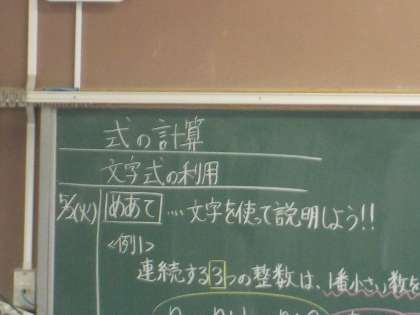 式の計算
文字式の利用
5/(火) めあて ‥‥文字を使って説明しよう!!
<例1>
連続する3つの整数は、1番小さい数を